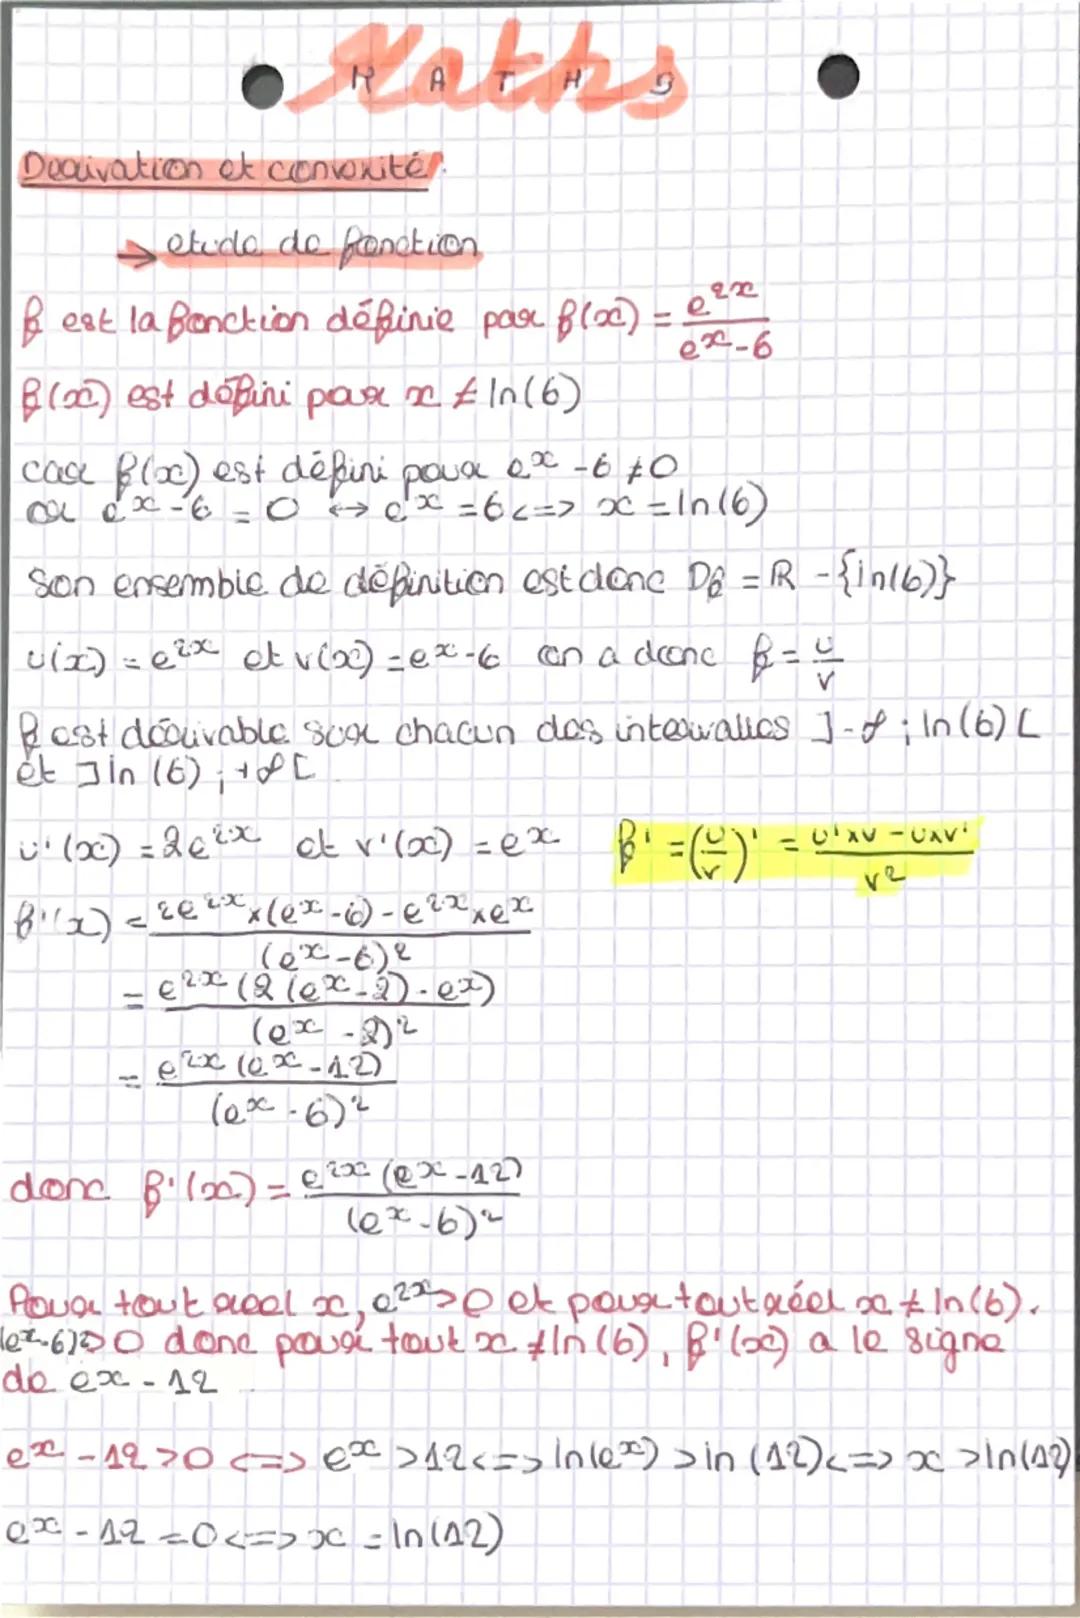 Maths
M A T H S
Derivation et convexité.
→ etude de fonction
f est la fonction définie par f(x) = e^{2x} / (e^x - 6)
f(x) est défini par x ≠ ln(6)
car f(x) est défini pour e^x - 6 ≠ 0
or e^x - 6 = 0 ↔ e^x = 6 <=> x = ln(6)
Son ensemble de définition est donc Df = ℝ - {ln(6)}
u(x) = e^{2x} et v(x) = e^x - 6 on a donc f = u/v
f est dérivable sur chacun des intervalles ]-∞ ; ln(6)[
et ]ln(6) ; +∞[
u'(x) = 2e^{2x} et v'(x) = e^x f' = (u/v)' = (u' × v - u × v') / v²
f'(x) = (2e^{2x} × (e^x - 6) - e^{2x} × e^x) / (e^x - 6)²
= e^{2x} (2(e^x - 2) - e^x) / (e^x - 2)²
= e^{2x} (e^x - 12) / (e^x - 6)²
donc f'(x) = e^{2x} (e^x - 12) / (e^x - 6)²
Pour tout réel x, e^{2x} > 0 et pour tout réel x ≠ ln(6).
(e^x - 6)² > 0 donc pour tout x ≠ ln(6), f'(x) a le signe
de ex - 12
e^x - 12 > 0 <=> e^x > 12 <=> ln(e^x) > ln(12) <=> x > ln(12)
e^x - 12 = 0 <=> x = ln(12)